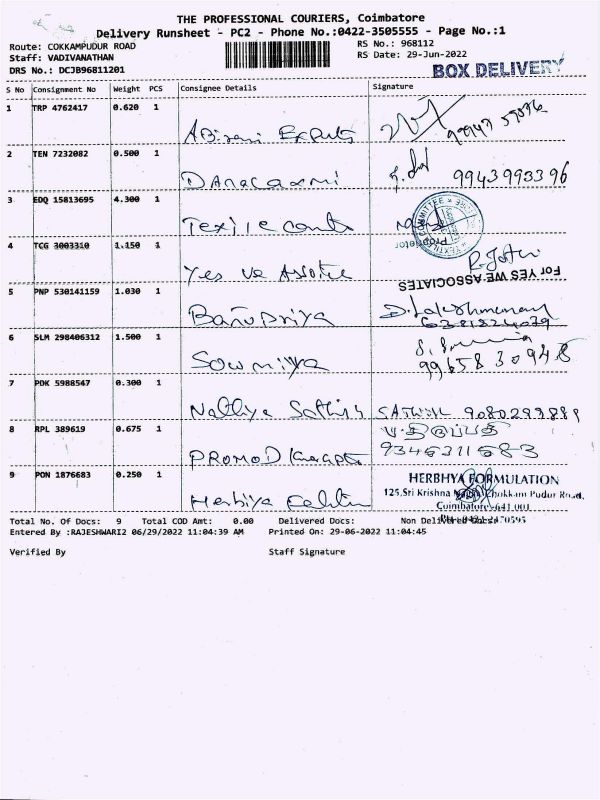 THE PROFESSIONAL COURIERS, Coimbatore
Delivery Runsheet - PC2 - Phone No.:0422-3505555 - Page No.:1
Route: COKKAMPUDUR ROAD RS No.: 968112
Staff: VADIVANATHAN RS Date: 29-Jun-2022
DRS No.: DCJB96811201 BOX DELIVERY
S No Consignment No Weight PCS Consignee Details Signature
1 TRP 4762417 0.620 1
2 TEN 7232082 0.500 1
9943993396
3 EDQ 15813695 4.300 1
Proprietor
4 TCG 3003310 1.150 1
Yes we
For YES WE ASSOCIATES
5 PNP 530141159 1.030 1
Banupriya D. Lakshmanan
6 SLM 298406312 1.500 1
Sowmiya
7 PDK 5988547 0.300 1
Nalliya Sathish SATHISH
8 RPL 389619 0.675 1
PROMOD
9 PON 1876683 0.250 1
Herbiya
HERBHYA FORMULATION
125,Sri Krishna Nagar, Chokkam Pudur Road,
Coimbatore-641 001
Total No. Of Docs: 9 Total COD Amt: 0.00 Delivered Docs: Non Delivered Docs:
Entered By :RAJESHWARI2 06/29/2022 11:04:39 AM Printed On: 29-06-2022 11:04:45
Verified By Staff Signature